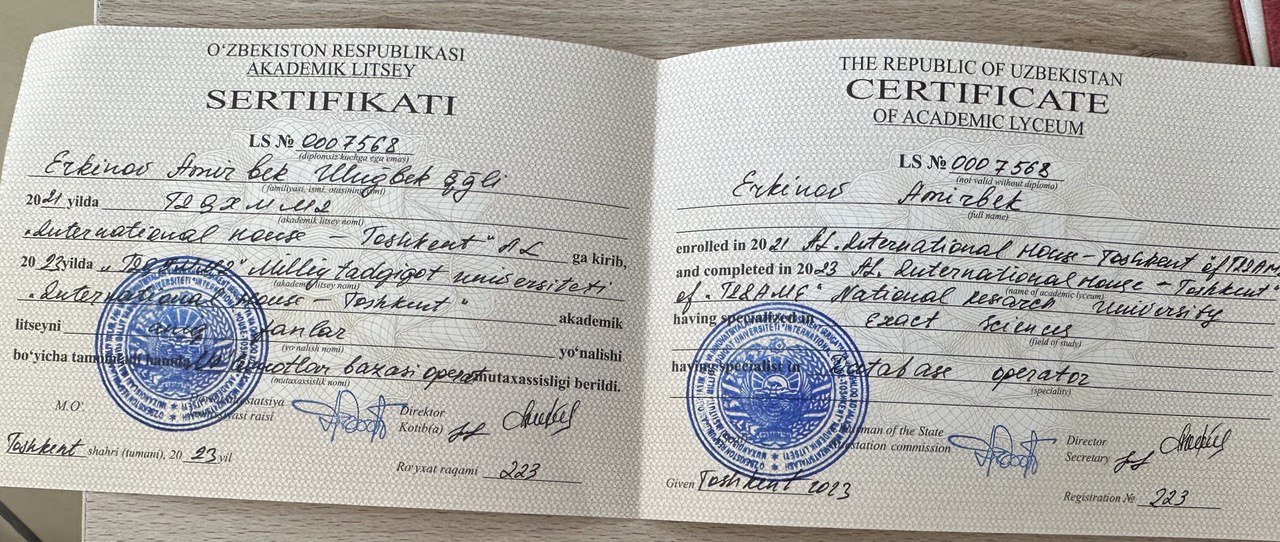 O‘ZBEKISTON RESPUBLIKASI
AKADEMIK LITSEY
SERTIFIKATI
LS № 0007568
(diplomsiz kuchga ega emas)
Erkinov Amirbek Ulug‘bek o‘g‘li
(familiyasi, ismi, otasining ismi)
2021 yilda TIQXMMI
(akademik litsey nomi)
„International House – Toshkent“ AL ga kirib,
2023 yilda „TIQXMMI“ Milliy tadqiqot universiteti
(akademik litsey nomi)
„International House – Toshkent“ akademik
litseyni aniq fanlar yo‘nalishi
(yo‘nalish nomi)
bo‘yicha tamomladi hamda Ma'lumotlar bazasi operatori mutaxassisligi berildi.
(mutaxassislik nomi)
M.O‘.
raisi
Direktor
Kotib(a)
Toshkent shahri (tumani), 2023 yil
Ro‘yxat raqami 223
THE REPUBLIC OF UZBEKISTAN
CERTIFICATE
OF ACADEMIC LYCEUM
LS № 0007568
(not valid without diploma)
Erkinov Amirbek
(full name)
enrolled in 2021 AL „International House – Toshkent“ of TIIAME
and completed in 2023 AL „International House – Toshkent“
(name of academic lyceum)
of „TIIAME“ National research University
having specialized in Exact Sciences
(field of study)
having specialist in Database operator
(speciality)
of the State
commission
Director
Secretary
Given Toshkent 2023
Registration № 223